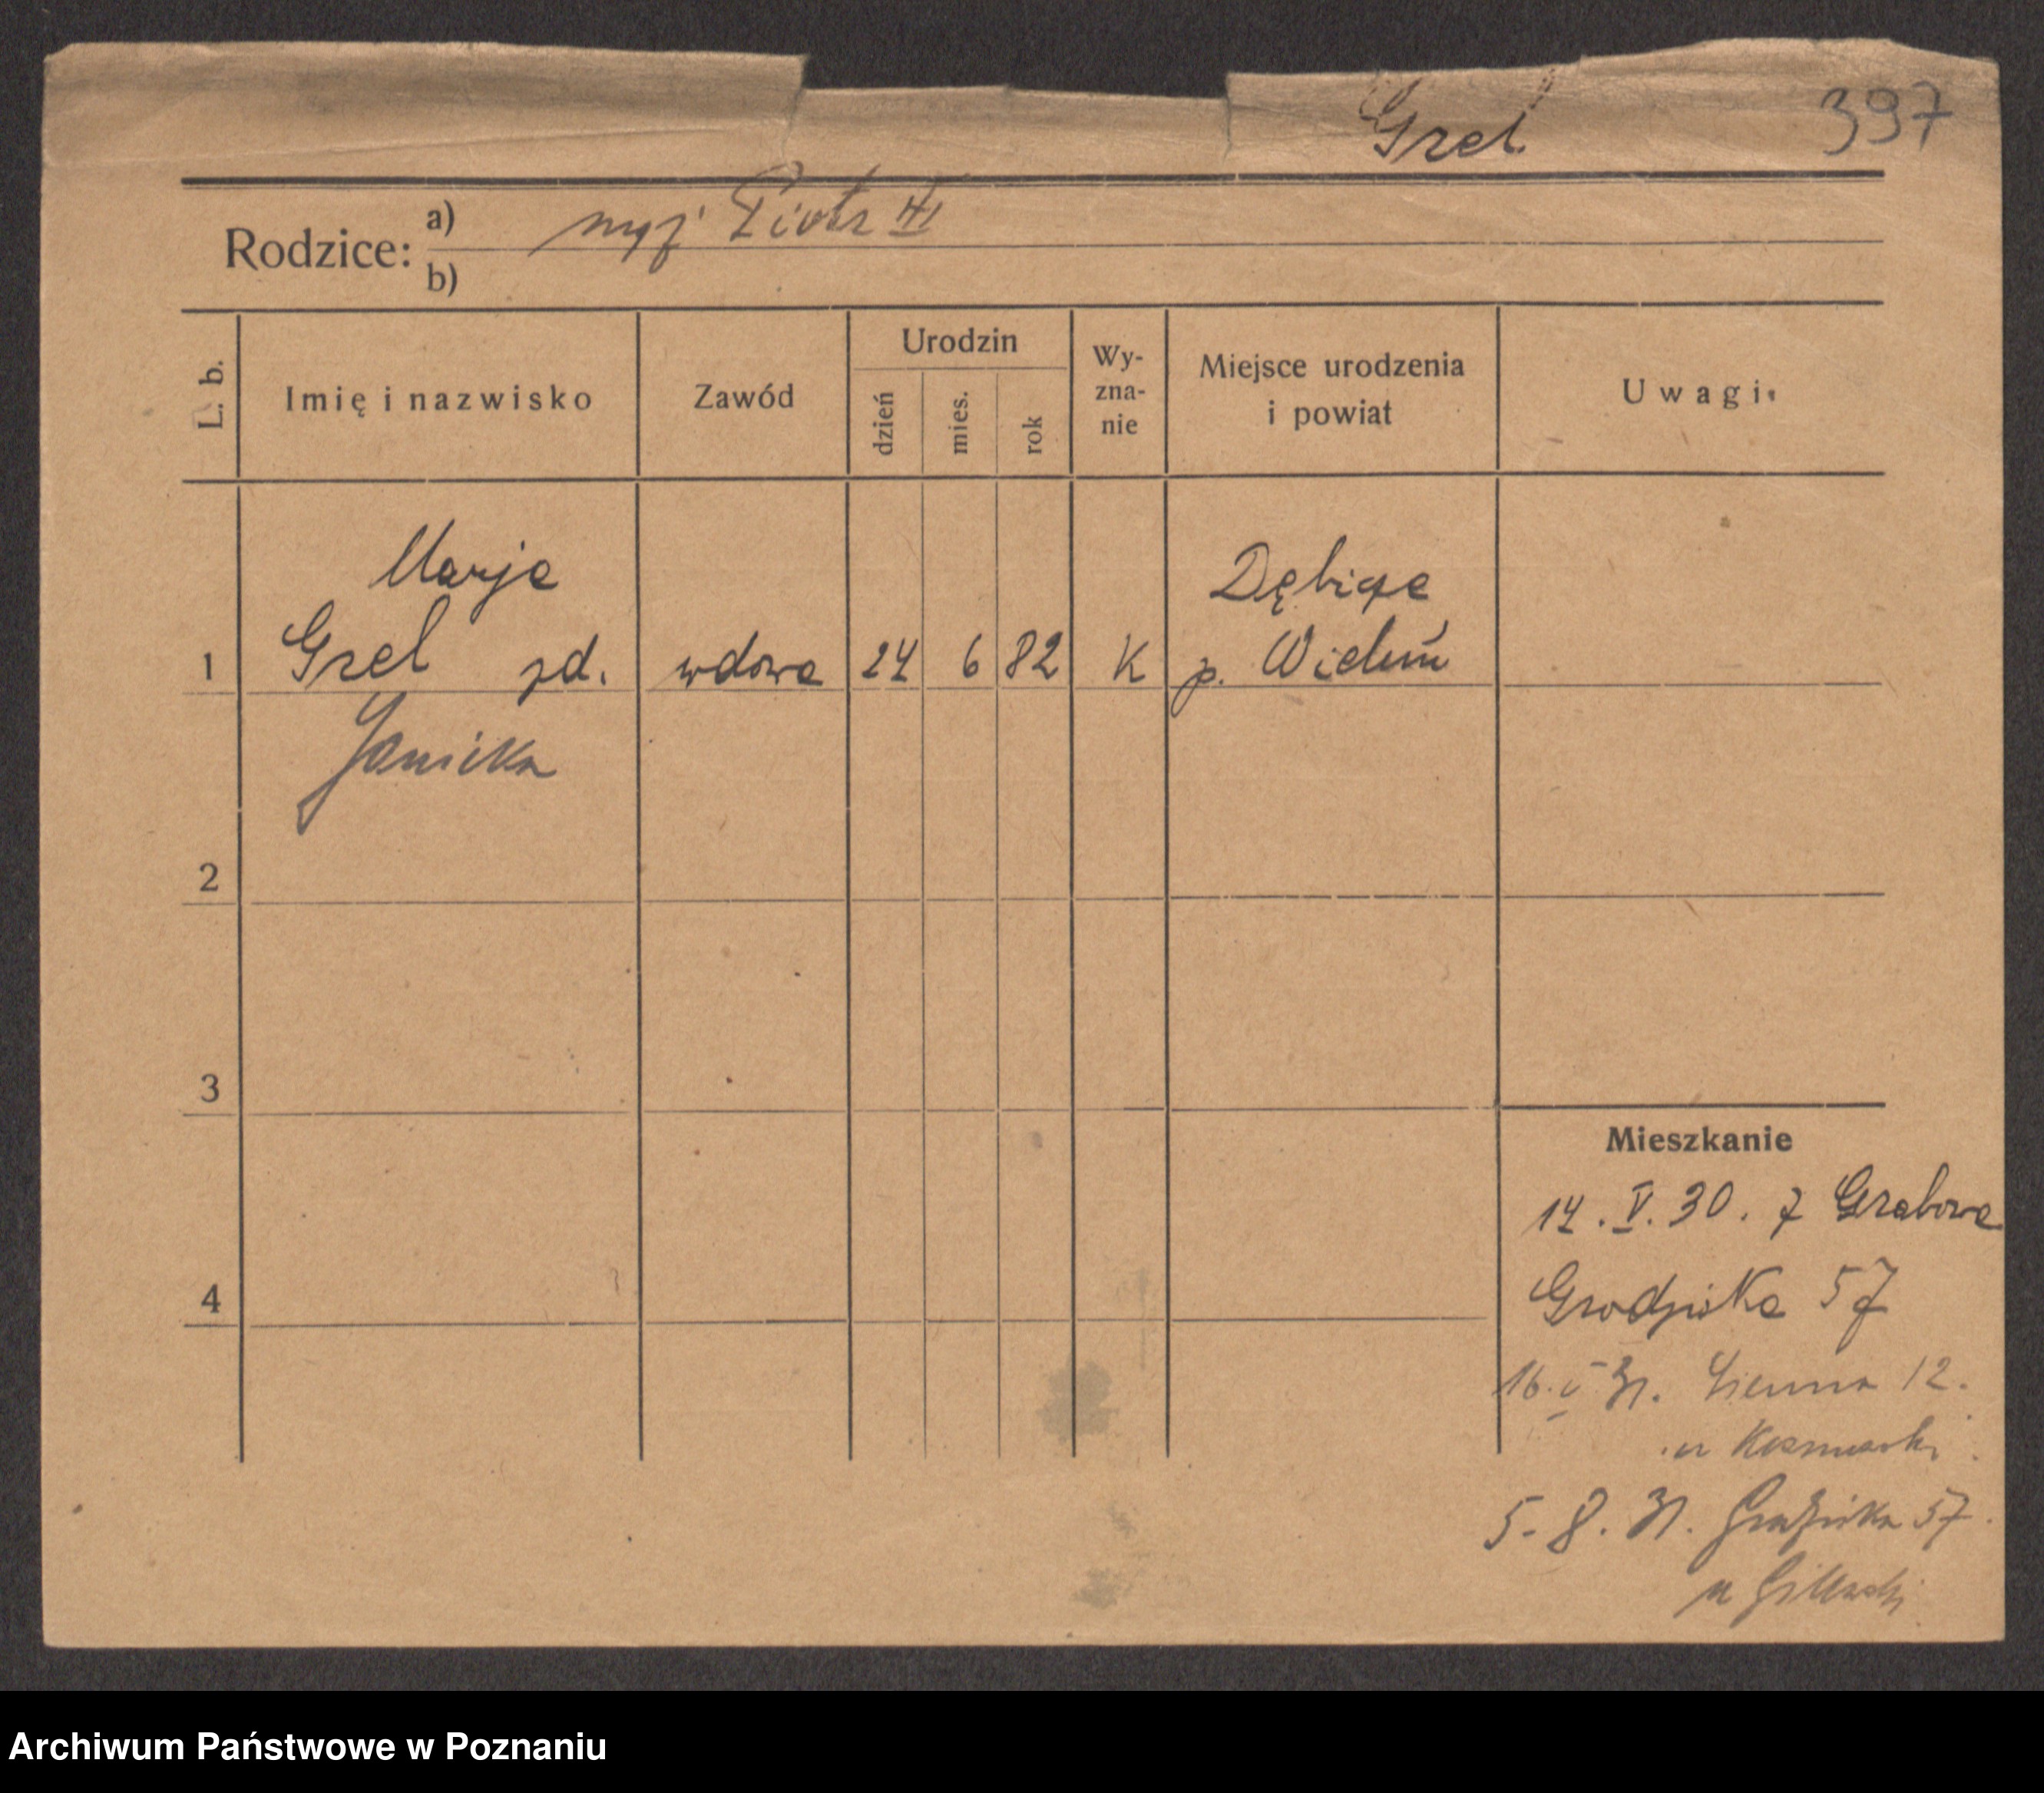 Grel
397
Rodzice:
a) myj Piotr III
b)
L. b.
Imię i nazwisko
Zawód
Urodzin
dzień
mies.
rok
Wy-
zna-
nie
Miejsce urodzenia
i powiat
Uwagi
Marja
Grel zd.
Janicka
1
wdowa
24
6
82
K
p. Wieluń
2
3
4
Mieszkanie
14. V. 30. z Grabowa
Grodziska 57
16. V 31. Sienna 12.
5-8. 31. Grodziska 57.
u
Archiwum Państwowe w Poznaniu